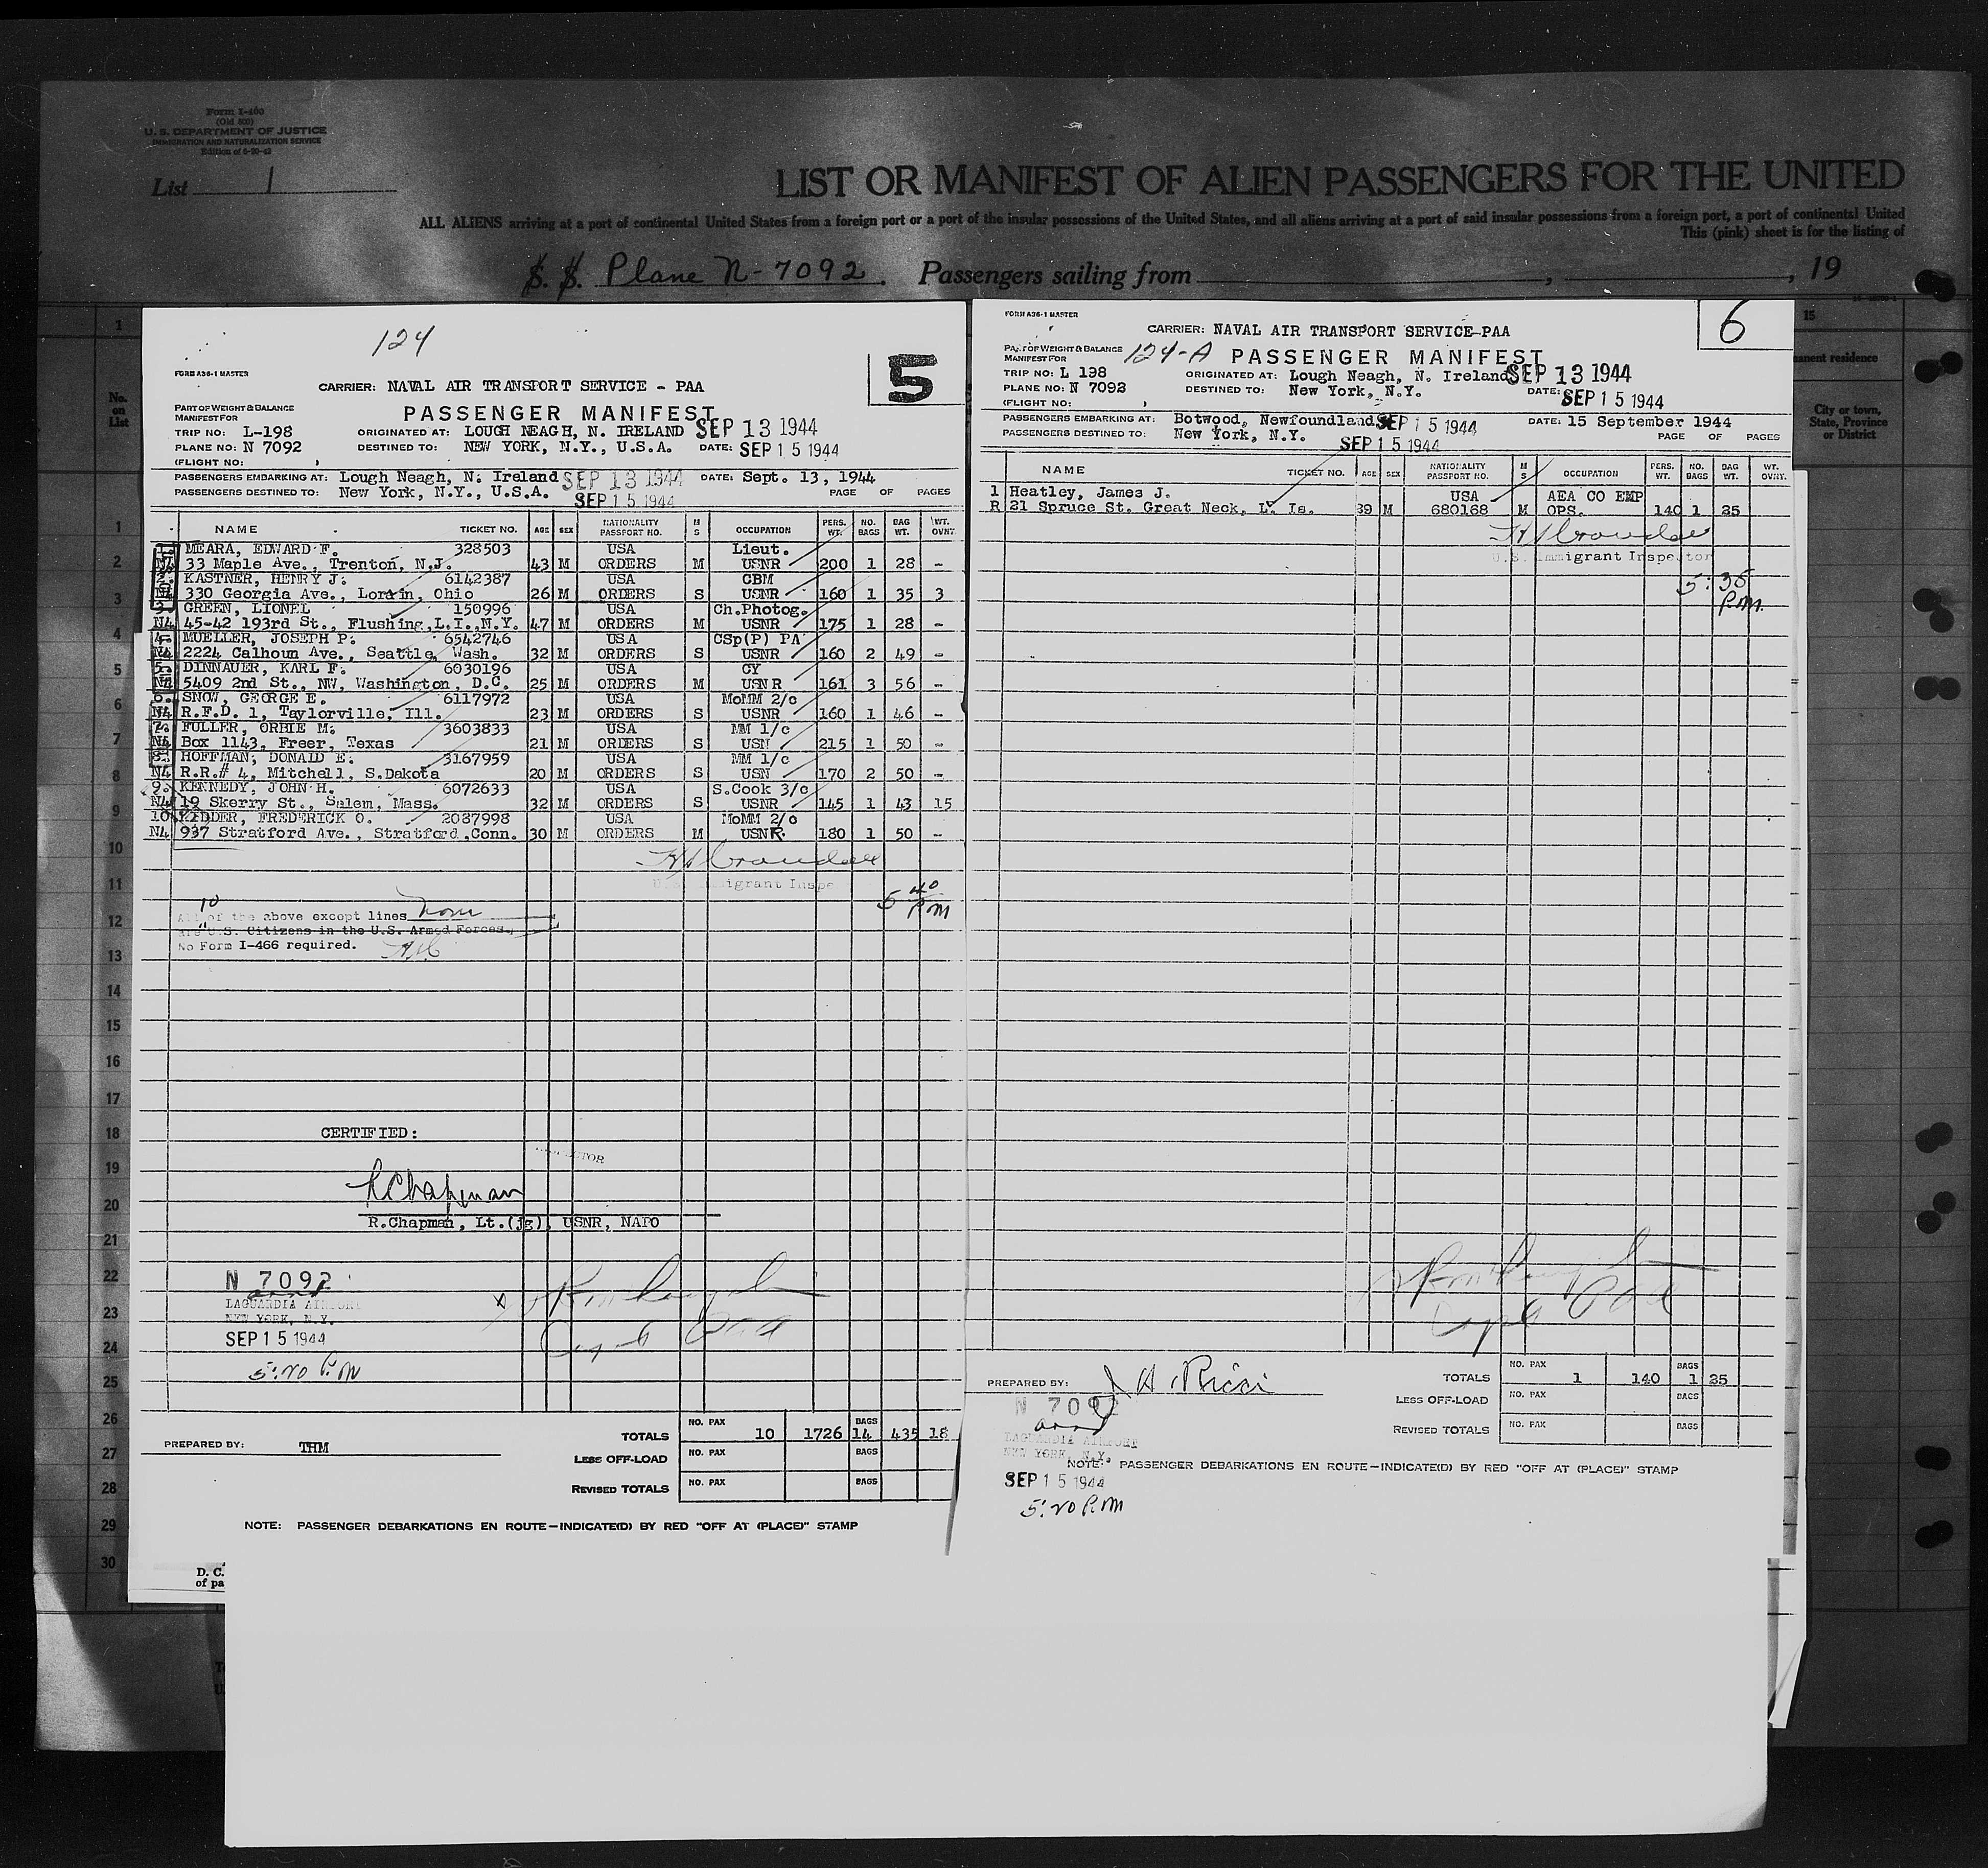 Form I-460
(Old 500)
U. S. DEPARTMENT OF JUSTICE
IMMIGRATION AND NATURALIZATION SERVICE
List 1
LIST OR MANIFEST OF ALIEN PASSENGERS FOR THE UNITED
ALL ALIENS arriving at a port of continental United States from a foreign port or a port of the insular possessions of the United States, and all aliens arriving at a port of said insular possessions from a foreign port, a port of continental United
This (pink) sheet is for the listing of
S. S. Plane N-7092. Passengers sailing from , , 19
No. on List
15
manent residence
City or town, State, Province or District
124
5
FORM A36-1 MASTER
CARRIER: NAVAL AIR TRANSPORT SERVICE - PAA
PART OF WEIGHT & BALANCE
MANIFEST FOR
PASSENGER MANIFEST
SEP 13 1944
TRIP NO: L-198 ORIGINATED AT: LOUGH NEAGH, N. IRELAND
PLANE NO: N 7092 DESTINED TO: NEW YORK, N.Y., U.S.A. DATE: SEP 15 1944
(FLIGHT NO: )
PASSENGERS EMBARKING AT: Lough Neagh, N. Ireland SEP 13 1944 DATE: Sept. 13, 1944
PASSENGERS DESTINED TO: New York, N.Y., U.S.A. SEP 15 1944 PAGE OF PAGES
NAME TICKET NO. AGE SEX NATIONALITY PASSPORT NO. M S OCCUPATION PERS. WT. NO. BAGS BAG WT. WT. OVNT.
1. MEARA, EDWARD F. 328503 USA Lieut.
N4 33 Maple Ave., Trenton, N.J. 43 M ORDERS M USNR 200 1 28 -
2. KASTNER, HENRY J. 6142387 USA CBM
N4 330 Georgia Ave., Lorain, Ohio 26 M ORDERS S USNR 160 1 35 3
3. GREEN, LIONEL 150996 USA Ch.Photog.
N4 45-42 193rd St., Flushing,L.I.,N.Y. 47 M ORDERS M USNR 175 1 28 -
4. MUELLER, JOSEPH P. 6542746 USA CSp(P) PA
N4 2224 Calhoun Ave., Seattle, Wash. 32 M ORDERS S USNR 160 2 49 -
5. DINNAUER, KARL F. 6030196 USA CY
N4 5409 2nd St., NW, Washington, D.C. 25 M ORDERS M USNR 161 3 56 -
6. SNOW, GEORGE E. 6117972 USA MoMM 2/c
N4 R.F.D. 1, Taylorville, Ill. 23 M ORDERS S USNR 160 1 46 -
7. FULLER, ORHIE M. 3603833 USA MM 1/c
N4 Box 1143, Freer, Texas 21 M ORDERS S USN 215 1 50 -
8. HOFFMAN, DONALD E. 3167959 USA MM 1/c
N4 R.R.# 4, Mitchell, S.Dakota 20 M ORDERS S USN 170 2 50 -
9. KENNEDY, JOHN H. 6072633 USA S.Cook 3/c
N4 19 Skerry St., Salem, Mass. 32 M ORDERS S USNR 145 1 43 15
10. KIDDER, FREDERICK O. 2037998 USA MoMM 2/c
N4 937 Stratford Ave., Stratford,Conn. 30 M ORDERS M USNR 180 1 50 -
U.S. Immigrant Inspe
5 40 PM
10
All of the above except lines none
are U.S. Citizens in the U.S. Armed Forces.
No Form I-466 required.
CERTIFIED:
RChapman
R.Chapman, Lt.(jg), USNR, NATO
N 7092
arrd
LAGUARDIA AIRPORT
NEW YORK, N.Y.
SEP 15 1944
5:20 P.M
TOTALS NO. PAX 10 1726 BAGS 14 435 18
PREPARED BY: THM
LESS OFF-LOAD NO. PAX BAGS
REVISED TOTALS NO. PAX BAGS
NOTE: PASSENGER DEBARKATIONS EN ROUTE-INDICATE(D) BY RED "OFF AT (PLACE)" STAMP
D. C.
of pa
6
FORM A36-1 MASTER
CARRIER: NAVAL AIR TRANSPORT SERVICE-PAA
PART OF WEIGHT & BALANCE
MANIFEST FOR
124-A PASSENGER MANIFEST
TRIP NO: L 198 ORIGINATED AT: Lough Neagh, N. Ireland SEP 13 1944
PLANE NO: N 7092 DESTINED TO: New York, N.Y. DATE: SEP 15 1944
(FLIGHT NO: )
PASSENGERS EMBARKING AT: Botwood, Newfoundland SEP 15 1944 DATE: 15 September 1944
PASSENGERS DESTINED TO: New York, N.Y. SEP 15 1944 PAGE OF PAGES
NAME TICKET NO. AGE SEX NATIONALITY PASSPORT NO. M S OCCUPATION PERS. WT. NO. BAGS BAG WT. WT. OVNT.
1 Heatley, James J. USA AEA CO EMP
R 21 Spruce St. Great Neck, L. Is. 39 M 680168 M OPS. 140 1 25
U.S. Immigrant Inspector
5:35 P.M.
PREPARED BY: J H Ricci
TOTALS NO. PAX 1 140 BAGS 1 25
LESS OFF-LOAD NO. PAX BAGS
REVISED TOTALS NO. PAX BAGS
N 7092
arrd
LAGUARDIA AIRPORT
NEW YORK, N.Y.
NOTE: PASSENGER DEBARKATIONS EN ROUTE-INDICATE(D) BY RED "OFF AT (PLACE)" STAMP
SEP 15 1944
5:20 P.M